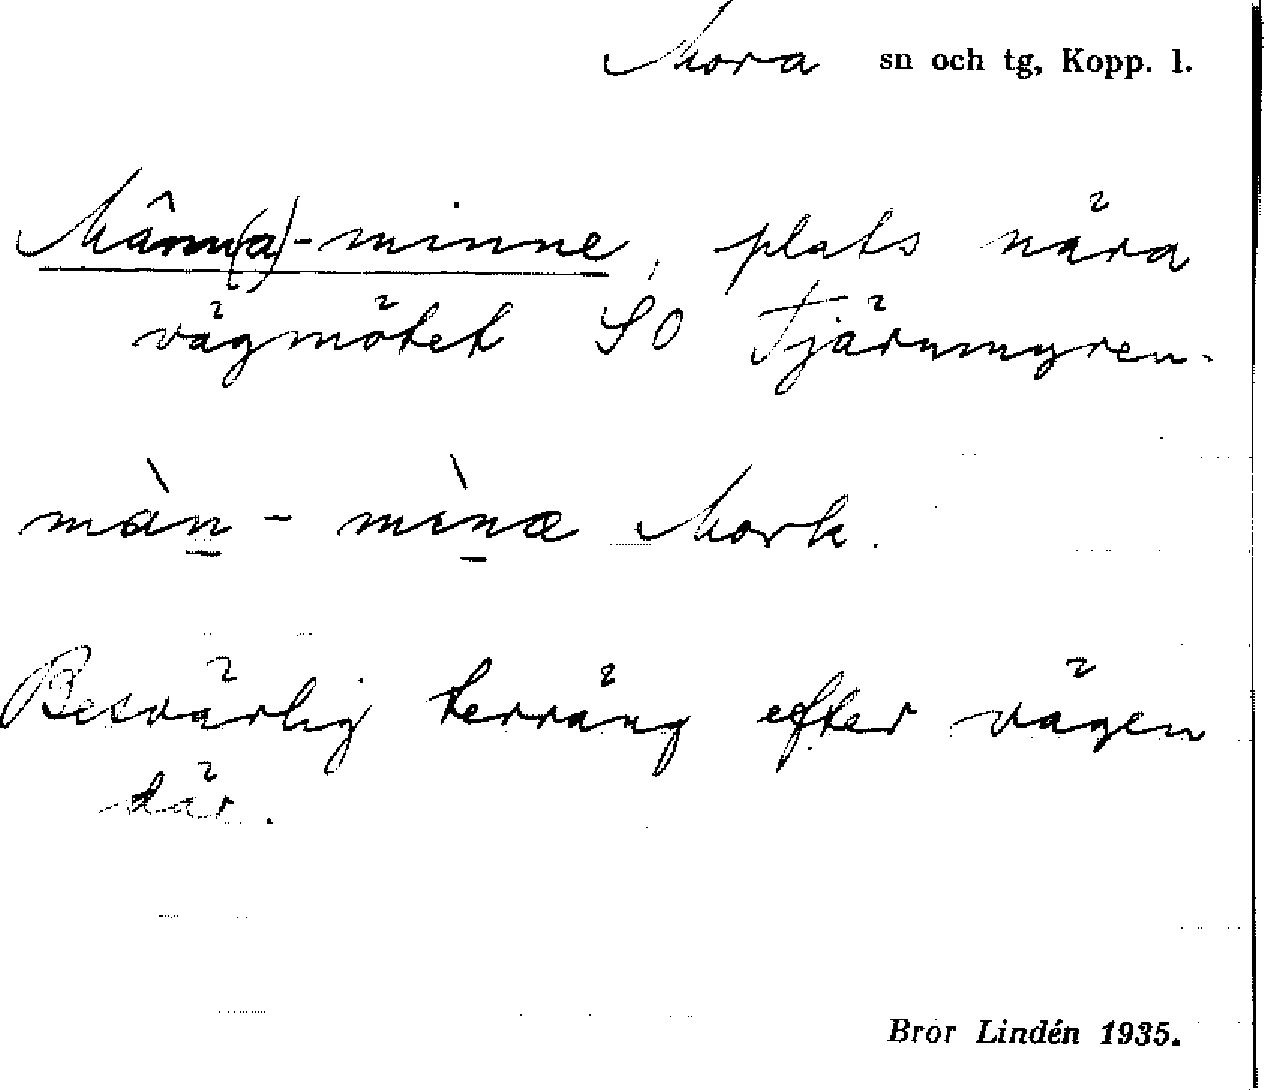 Mora sn och tg, Kopp. l.
Mânn(a)-minne, plats nära
vägmötet SO Tjärnmyren.
màn - mìnæ Mork.
Besvärlig terräng efter vägen
där.
Bror Lindén 1935.